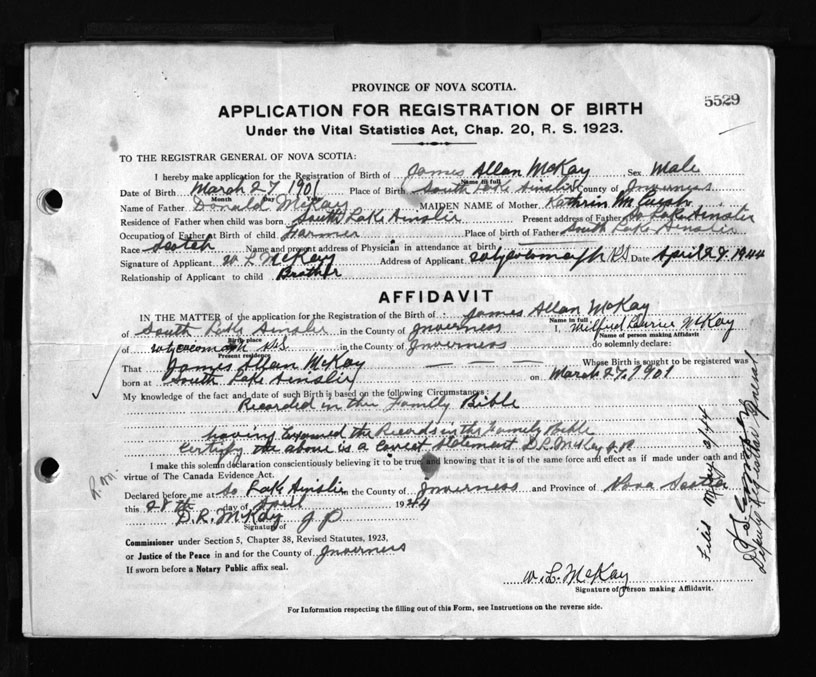 PROVINCE OF NOVA SCOTIA.
5529
APPLICATION FOR REGISTRATION OF BIRTH
Under the Vital Statistics Act, Chap. 20, R. S. 1923.
TO THE REGISTRAR GENERAL OF NOVA SCOTIA:
I hereby make application for the Registration of Birth of James Allan McKay Sex Male
Name in full
Date of Birth March 27 1901 Place of Birth South Lake Ainslie County of Inverness
Month Day
Name of Father Donald McKay MAIDEN NAME of Mother Kathrin
Residence of Father when child was born South Lake Ainslie Present address of Father So Lake Ainslie
Occupation of Father at Birth of child Farmer Place of birth of Father South Lake Ainslie
Race Scotch Name and present address of Physician in attendance at birth
Signature of Applicant W. L McKay Address of Applicant NS Date April 28, 1944
Relationship of Applicant to child Brother
AFFIDAVIT
IN THE MATTER of the application for the Registration of the Birth of : James Allan McKay
Name in full
of South Lake Ainslie in the County of Inverness I, Wilfred Laurier McKay
Birth place Name of person making Affidavit
of NS in the County of Inverness do solemnly declare:
Present residence
That James Allan McKay Whose Birth is sought to be registered was
born at South Lake Ainslie on March 27, 1901
My knowledge of the fact and date of such Birth is based on the following Circumstances:
Recorded in the Family Bible
having Examined the Records in the Family Bible
Certify the above is a Correct Statement D.R. McKay J.P.
I make this solemn declaration conscientiously believing it to be true, and knowing that it is of the same force and effect as if made under oath and by
virtue of The Canada Evidence Act.
Declared before me at So Lake Ainslie in the County of Inverness and Province of Nova Scotia
this 28th day of April 1944
D.R. McKay J P
Signature of
Commissioner under Section 5, Chapter 38, Revised Statutes, 1923,
or Justice of the Peace in and for the County of Inverness
If sworn before a Notary Public affix seal.
W. L. McKay
Signature of Person making Affidavit.
For Information respecting the filling out of this Form, see Instructions on the reverse side.
R.M.
Filed May 2/44
Deputy Registrar General